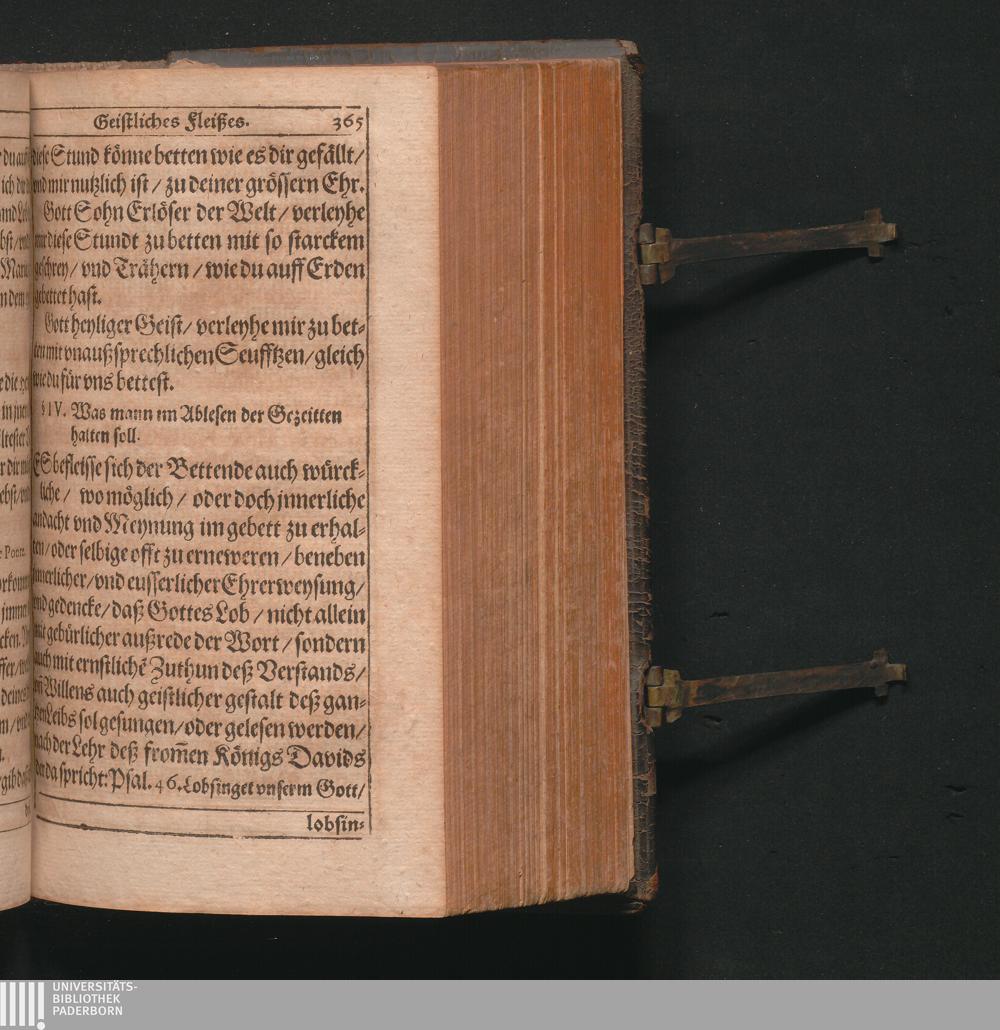 Geistliches Fleißes. 365
diese Stund könne betten wie es dir gefällt/
und mir nutzlich ist / zu deiner grössern Ehr.
Gott Sohn Erlöser der Welt / verleyhe
mir diese Stundt zu betten mit so starckem
geschrey / vnd Trähern / wie du auff Erden
gebettet hast.
Gott heyliger Geist / verleyhe mir zu bet-
ten mit vnaußsprechlichen Seufftzen / gleich
wie du für vns bettest.
§ IV. Was mann im Ablesen der Gezeitten
halten soll.
ES befleisse sich der Bettende auch würck-
liche / wo möglich / oder doch jnnerliche
andacht vnd Meynung im gebett zu erhal-
ten / oder selbige offt zu erneweren / beneben
jnnerlicher / vnd eusserlicher Ehrerweysung /
vnd gedencke / daß Gottes Lob / nicht allein
mit gebürlicher außrede der Wort / sondern
auch mit ernstlichē Zuthun deß Verstands /
vn̄ Willens auch geistlicher gestalt deß gan-
tzen Leibs sol gesungen / oder gelesen werden /
nach der Lehr deß from̄en Königs Davids
der da spricht: Psal. 46. Lobsinget vnserm Gott /
lobsin-
UNIVERSITÄTS-
BIBLIOTHEK
PADERBORN